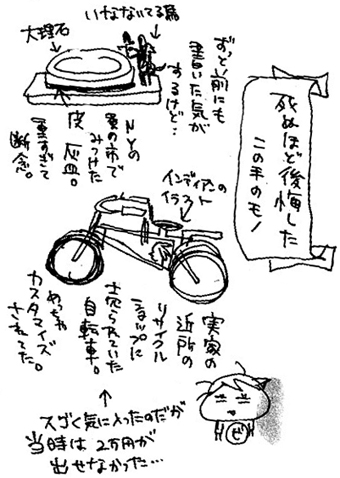 死ぬほど後悔した
この手のモノ
ずっと前にも
書いた気が
するけど…
いなないてる馬
大理石
NYの
蚤の市で
みつけた
灰皿。
重すぎて
断念。
インディアンの
イラスト
実家の
近所の
リサイクル
ショップに
売られていた
自転車。
めっちゃ
カスタマイズ
されてた。
↑
スゴく気に入ったのだが
当時は2万円が
出せなかった…
ぜ